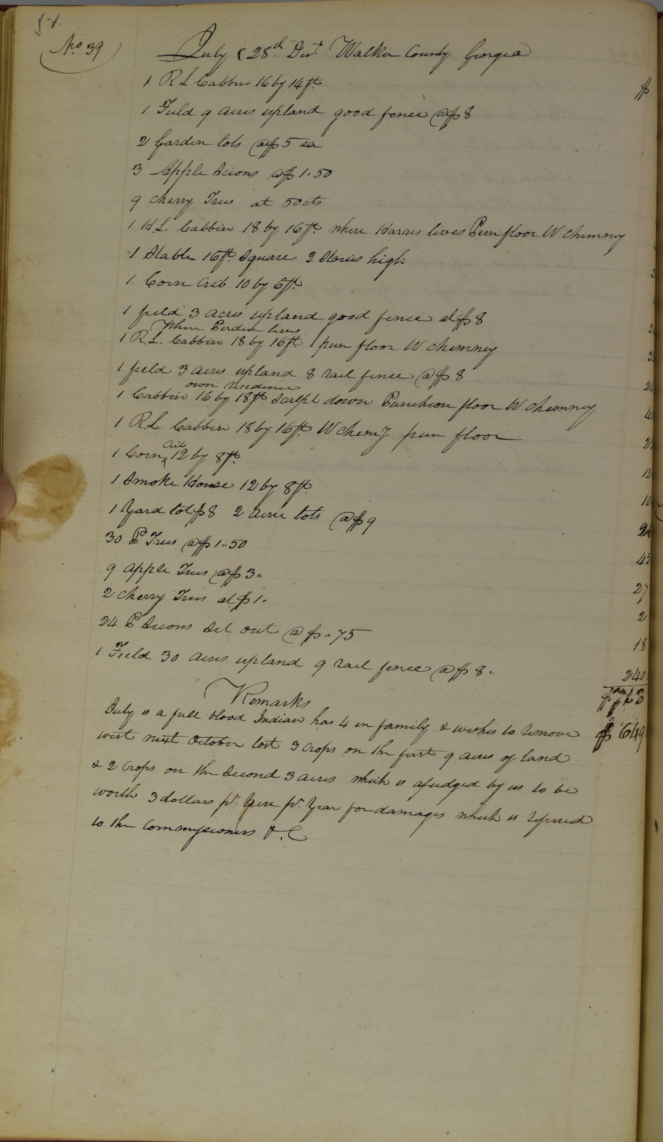 51
No 39
July (28th Dist. Walker County Georgia
1 R L Cabbin 16 by 14ft $
1 Field 9 acres upland good fence @$8
2 Garden lots @$5 ea
3 Apple Scions @$1.50
9 Cherry Trees at 50cts
1 H.L. Cabbin 18 by 16ft where Harris lives Pun floor W Chimney
1 Stable 16ft Square 2 Stories high
1 Corn Crib 10 by 6ft
1 field 3 acres upland good fence at $8
Where lives
1 R.L. Cabbin 18 by 16ft pun floor W Chimney
1 field 3 acres upland 8 rail fence @$8
own residence
1 Cabbin 16 by 18ft Scalpt down Puncheon floor W Chimney
1 R L Cabbin 18 by 16ft W Chimy pun floor
1 Corn Crib 12 by 8ft.
1 Smoke House 12 by 8ft 10
1 Yard lot $8 2 acre lots @$9
30 P Trees @$1.50 45
9 Apple Trees @$3. 27
2 Cherry Trees at $1. 2
24 P Scions Set out @$.75 18
1 Field 30 acres upland 9 rail fence @$8. 240
Remarks
July is a full blood Indian has 4 in family & wishes to remove $649
west next October lost 3 Crops on the first 9 acres of land
& 2 Crops on the Second 3 acres which is ajudged by us to be
worth 3 dollars pr. Acre pr. Year for damages which is refered
to the Commissioners &.C